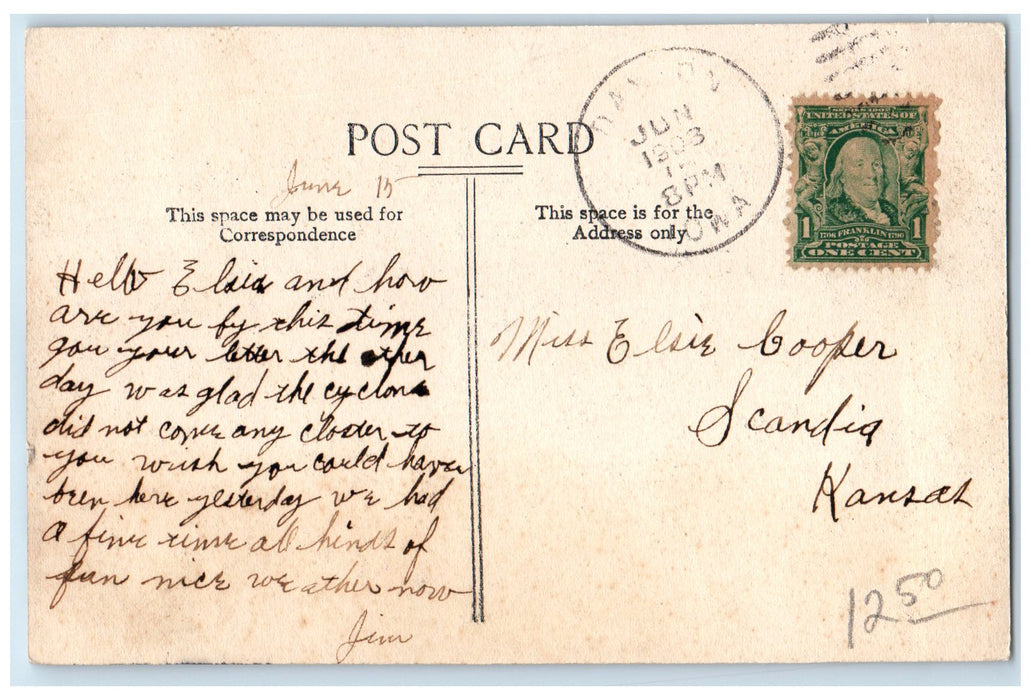 POST CARD
June 15
This space may be used for
Correspondence
Hello Elsie and how
are you by this time
gou your letter the other
day was glad the cyclone
did not come any closter to
you wish you could have
been here yesterday we had
a fine time all kinds of
fun nice weather now
Jim
This space is for the
Address only
JUN
1908
8 PM
IOWA
SERIES 1902
UNITED STATES OF
AMERICA
1 1
1706 FRANKLIN 1790
POSTAGE
ONE CENT
Miss Elsie Cooper
Scandia
Kansas
12 50